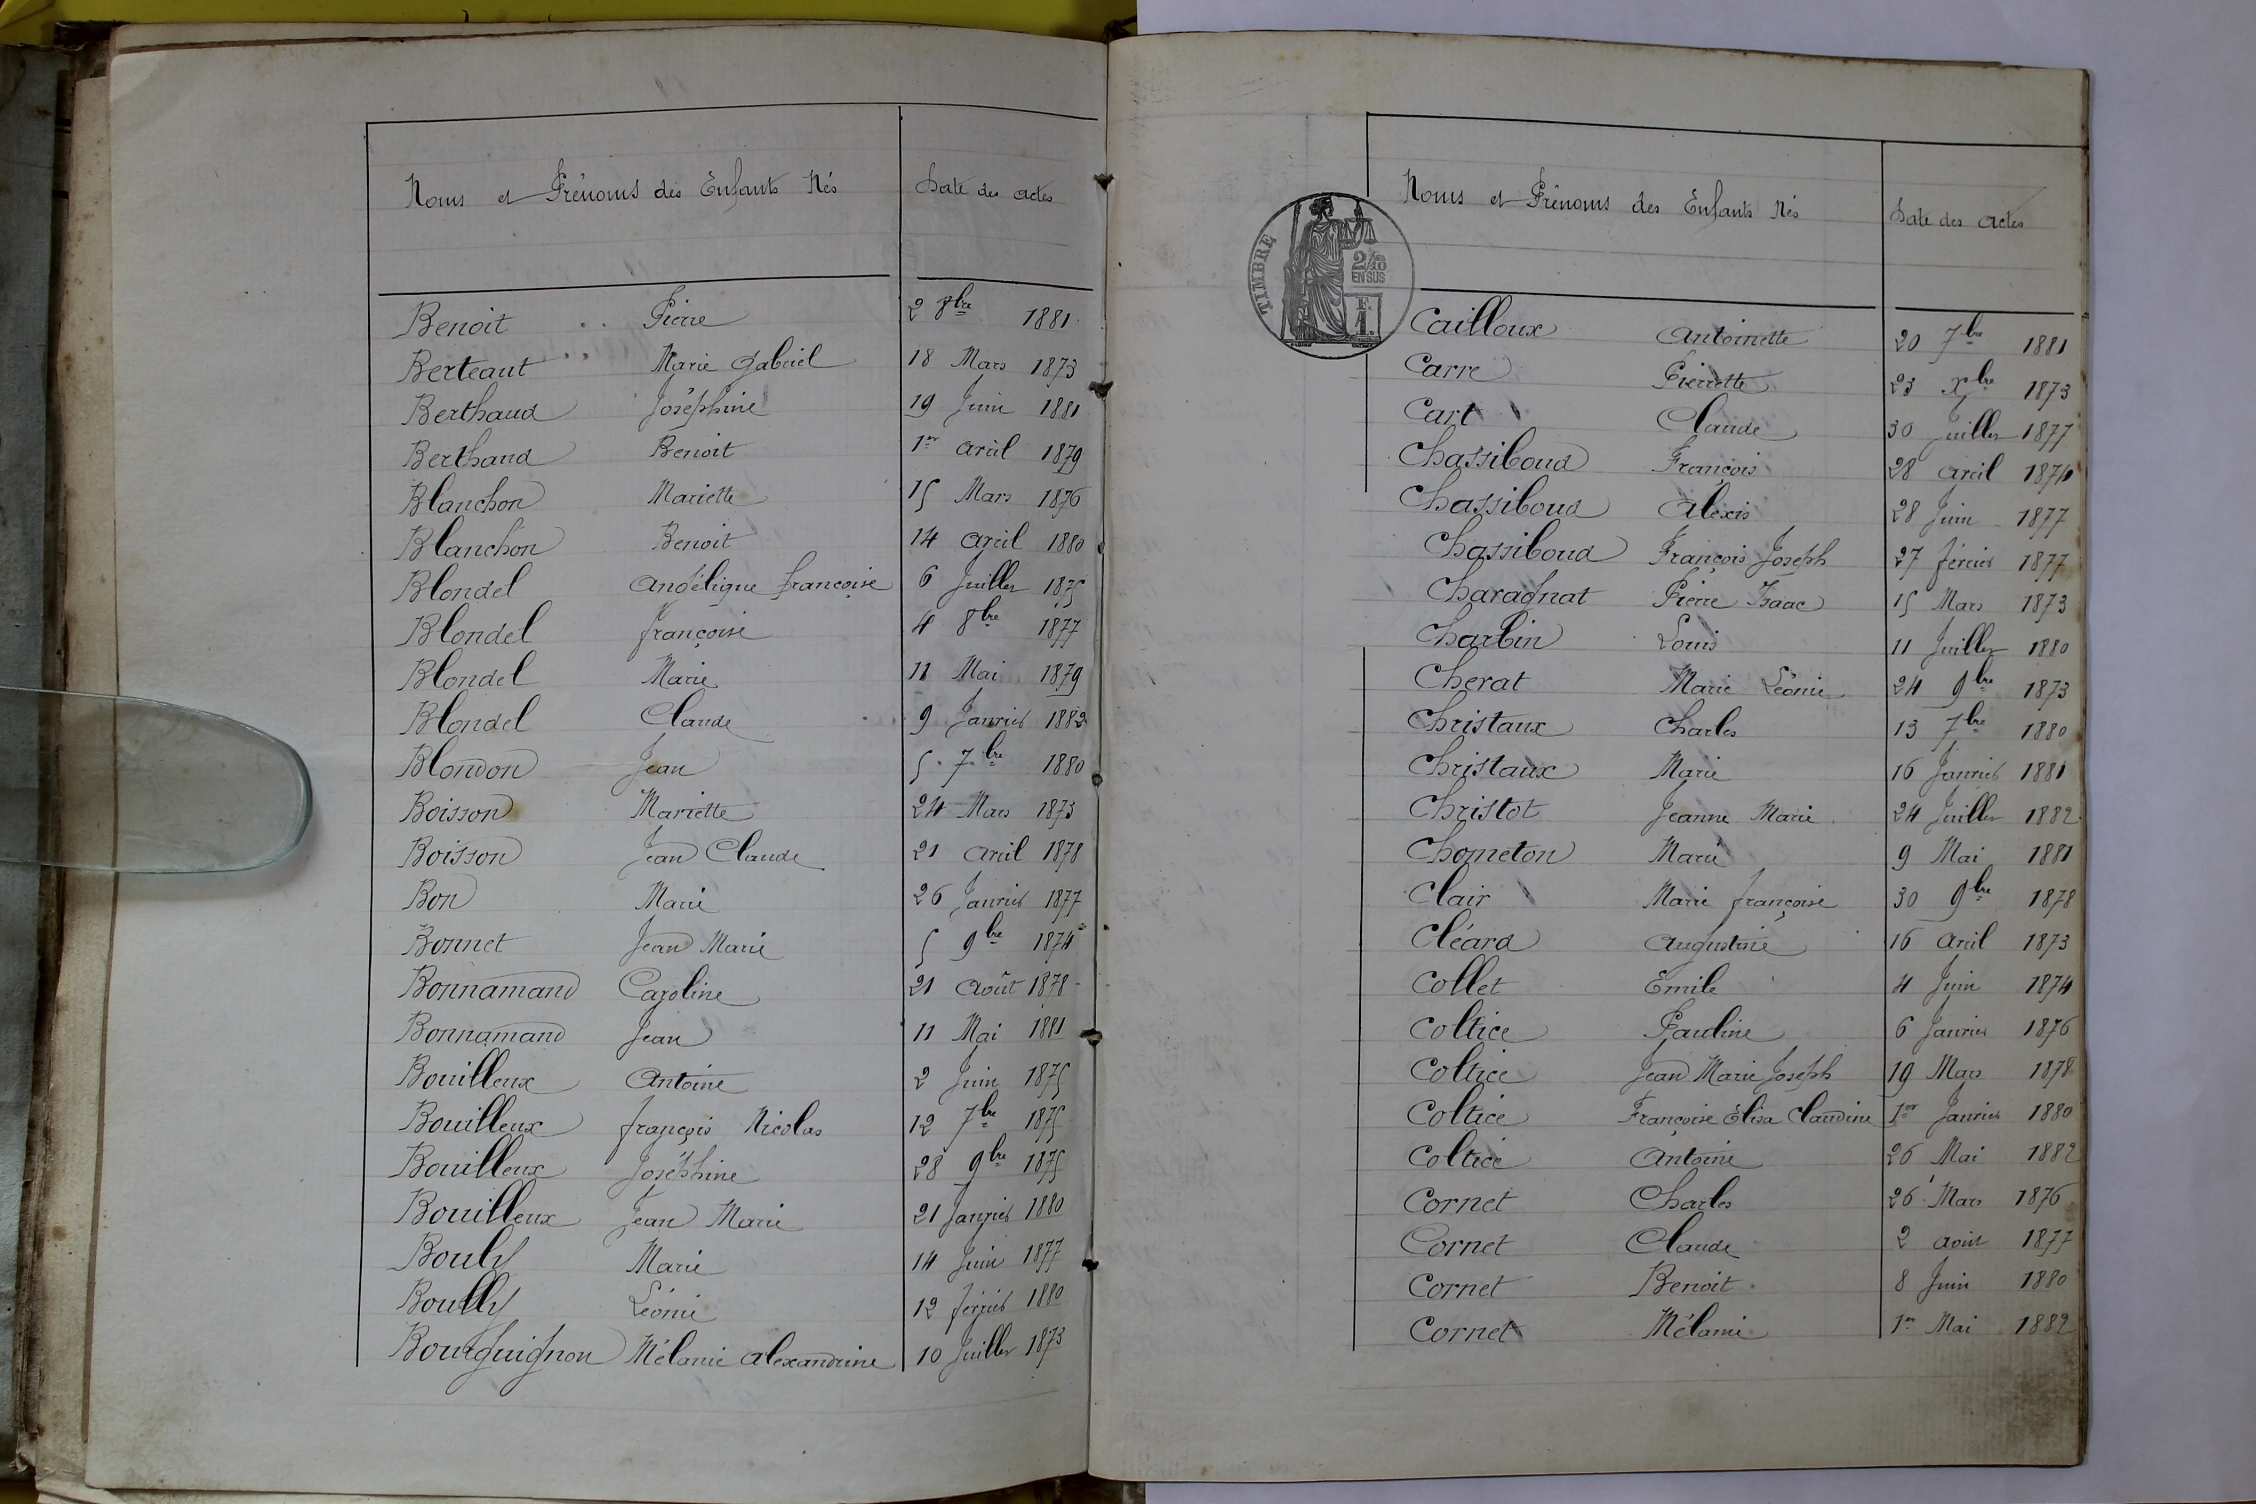 Noms et Prénoms des Enfants Nés Date des actes
Benoit Pierre 2 8bre 1881
Berteaut Marie Gabriel 18 Mars 1873
Berthaud Joséphine 19 Juin 1881
Berthaud Benoit 1er avril 1879
Blanchon Mariette 15 Mars 1876
Blanchon Benoit 14 avril 1880
Blondel Angélique françoise 6 Juillet 1875
Blondel françoise 4 8bre 1877
Blondel Marie 11 Mai 1879
Blondel Claude 9 Janvier 1882
Blondon Jean 5 7bre 1880
Boisson Mariette 24 Mars 1873
Boisson Jean Claude 21 avril 1878
Bon Marie 26 Janvier 1877
Bonnet Jean Marie 5 9bre 1874
Bonnamand Caroline 21 Août 1878
Bonnamand Jean 11 Mai 1881
Bouilleux Antoine 2 Juin 1875
Bouilleux françois Nicolas 12 7bre 1875
Bouilleux Joséphine 28 9bre 1875
Bouilleux Jean Marie 21 Janvier 1880
Bouly Marie 14 Juin 1877
Boully Léonie 12 février 1880
Bourguignon Mélanie alexandrine 10 Juillet 1873
TIMBRE
2/10
EN SUS
F.
1.
Noms et Prénoms des Enfants Nés Date des actes
Cailloux Antoinette 20 7bre 1881
Carre Pierrette 23 Xbre 1873
Cart Claude 30 Juillet 1877
Chassiboud François 28 avril 1874
Chassiboud Alexis 28 Juin 1877
Chassiboud François Joseph 27 février 1877
Charagnat Pierre Isaac 15 Mars 1873
Charbin Louis 11 Juillet 1880
Cherat Marie Léonie 24 9bre 1873
Christaux Charles 13 7bre 1880
Christaux Marie 16 Janvier 1881
Christot Jeanne Marie 24 Juillet 1882
Chometon Marie 9 Mai 1881
Clair Marie françoise 30 9bre 1878
Cléard Augustine 16 avril 1873
Collet Emile 4 Juin 1874
Coltice Pauline 6 Janvier 1876
Coltice Jean Marie Joseph 19 Mars 1878
Coltice Françoise Elisa Claudine 1er Janvier 1880
Coltice Antoine 26 Mai 1882
Cornet Charles 26 Mars 1876
Cornet Claude 2 août 1877
Cornet Benoit 8 Juin 1880
Cornet Mélanie 1er Mai 1882